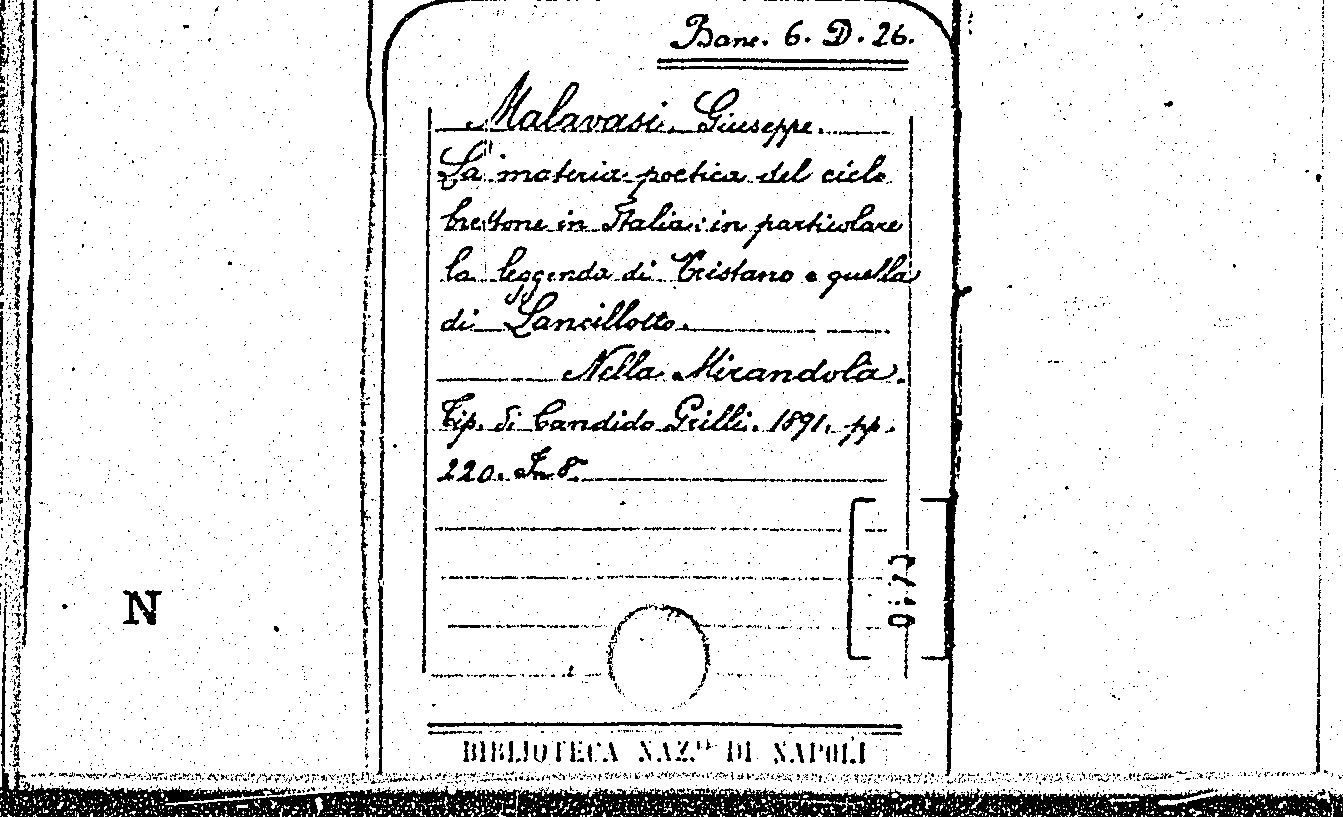 Banc. 6. D. 26.
Malavasi Giuseppe.
La materia poetica del ciclo
brettone in Italia: in particolare
la leggenda di Tristano e quella
di Lancillotto.
Nella Mirandola.
Tip. di Candido Grilli. 1891. pp.
220. In 8º
N
BIBLIOTECA NAZ.le DI NAPOLI